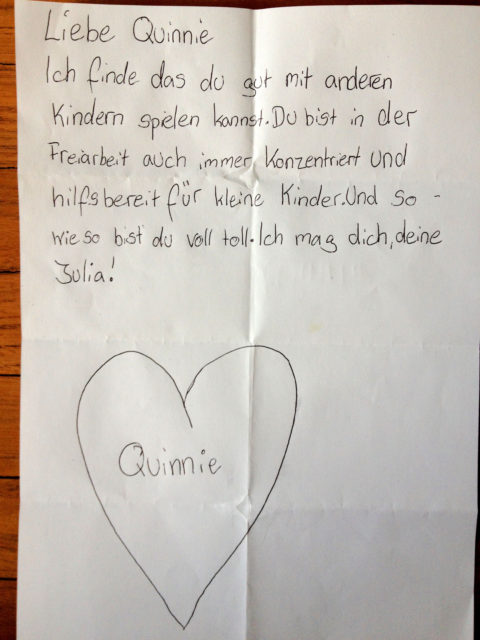 Liebe Quinnie
Ich finde das du gut mit anderen
Kindern spielen kannst. Du bist in der
Freiarbeit auch immer Konzentriert und
hilfsbereit für kleine Kinder. Und so -
wie so bist du voll toll. Ich mag dich, deine
Julia!
Quinnie